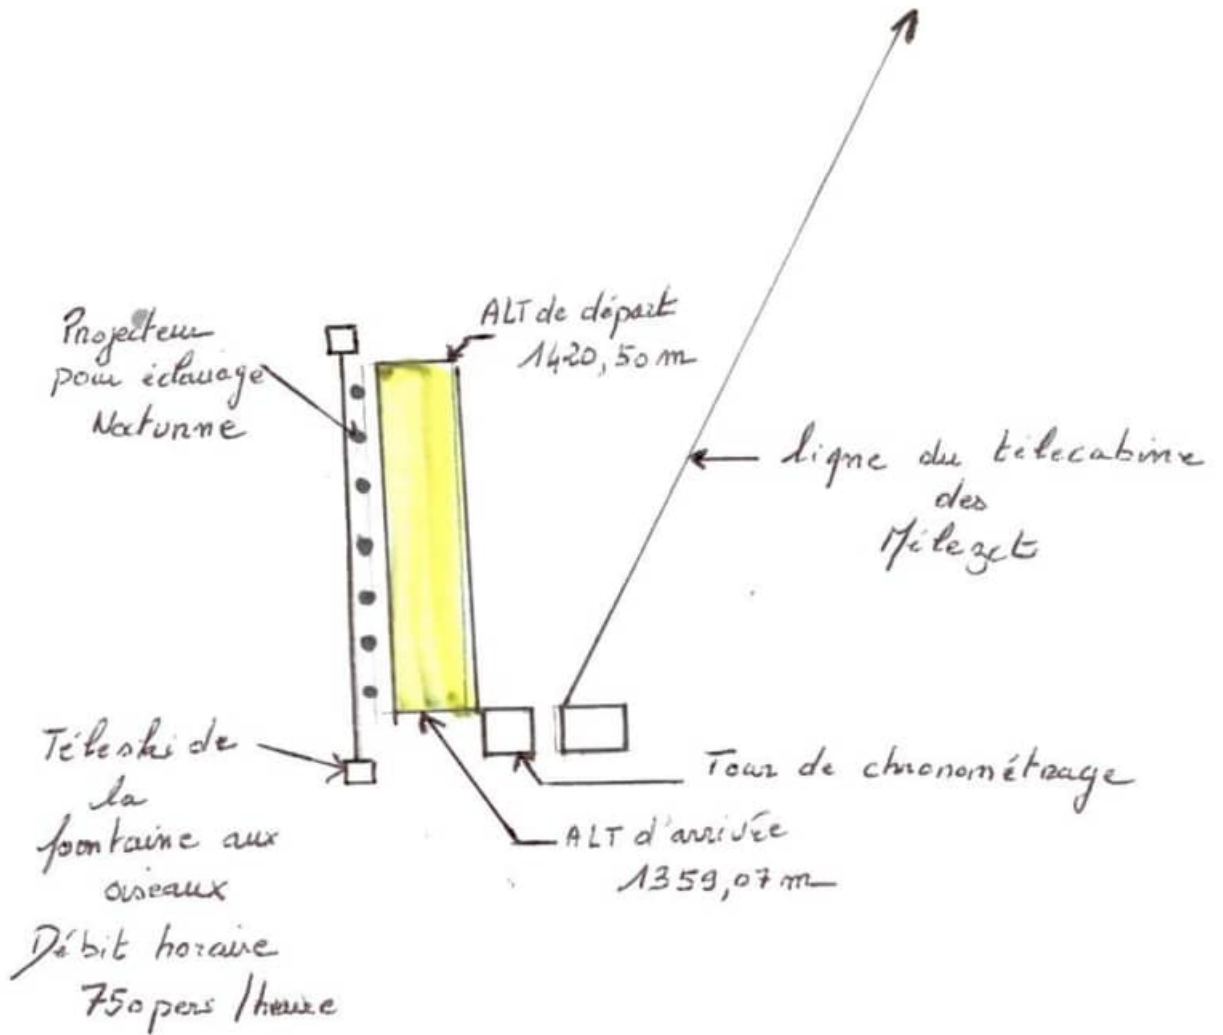 Projecteur
pour éclairage
Nocturne
ALT de départ
1420,50 m
ligne du télécabine
des
Mélezet
Téleski de
la
fontaine aux
oiseaux
Débit horaire
750 pers / heure
Tour de chronométrage
ALT d'arrivée
1359,07 m